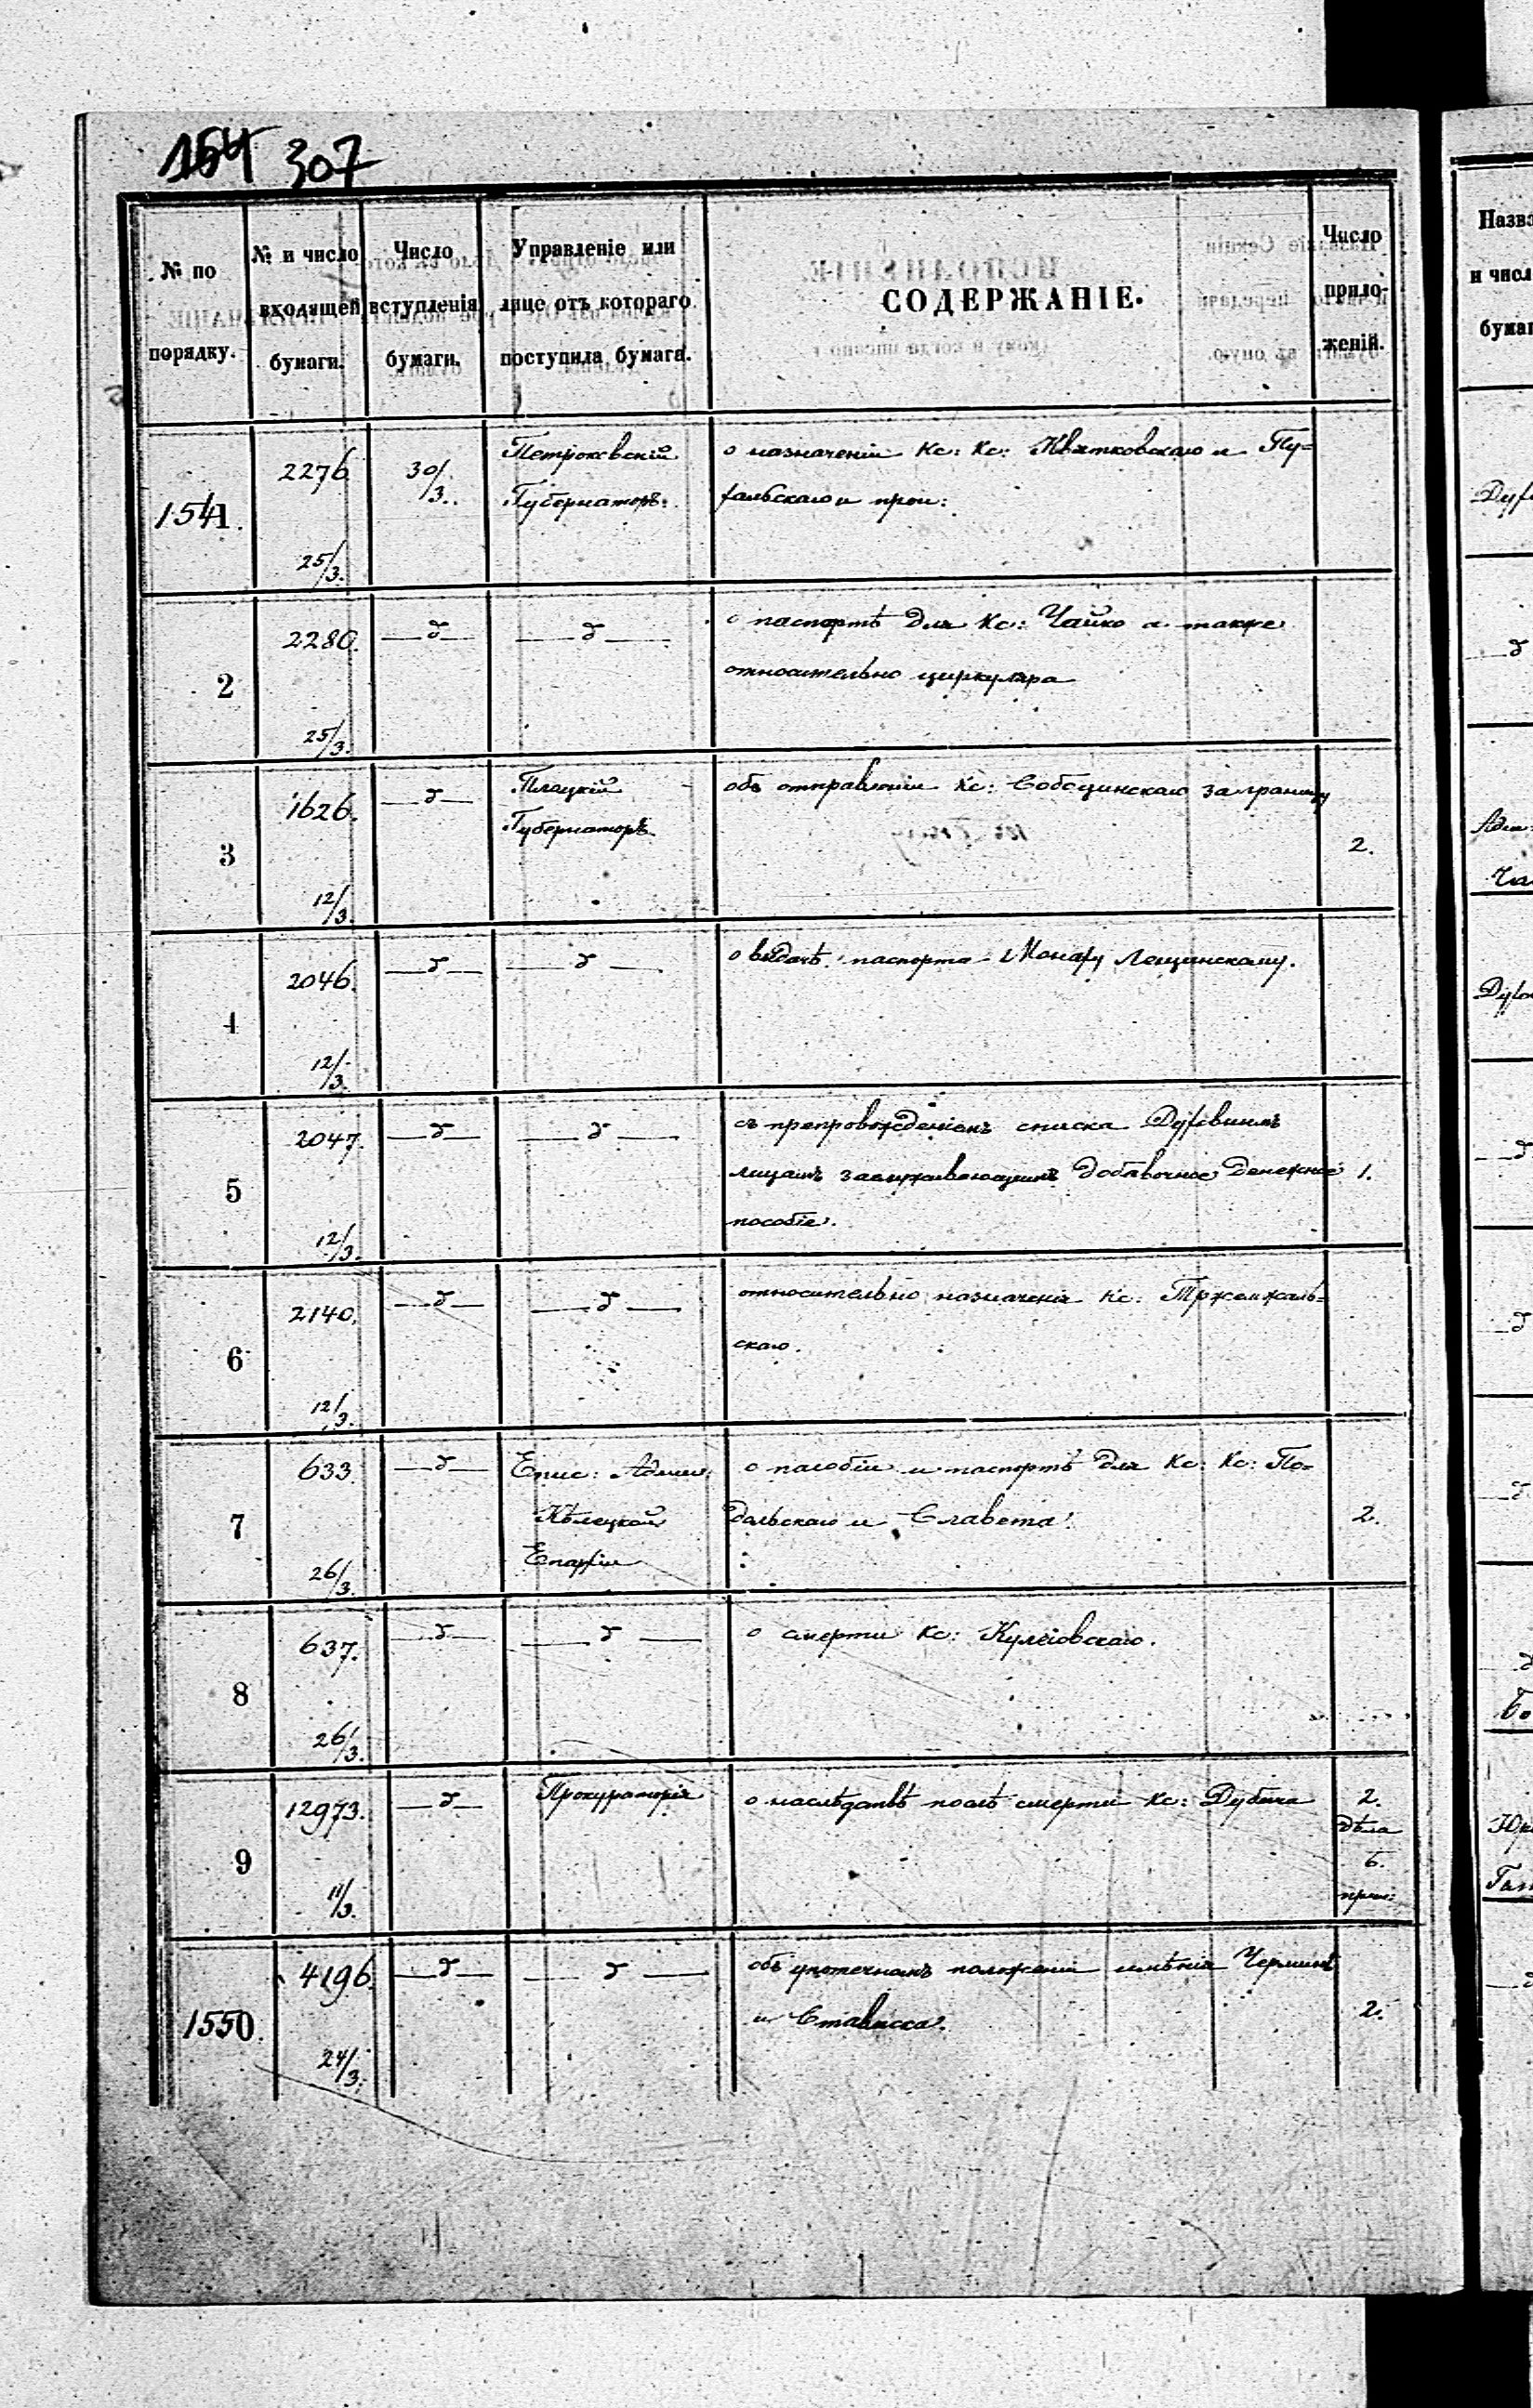 154 307
№ по порядку.
№ и число входящей бумаги.
Число вступленія бумаги.
Управленіе или лице отъ котораго поступила бумага.
СОДЕРЖАНІЕ.
Число приложеній.
1541.
2276
25/3.
30/3.
Петроковскій
Губернаторъ.
о назначеніи Кс: Кс: Квятковскаго и Пу=
хальскаго и проч:
2
2280.
25/3.
—д—
—д—
о паспортѣ для Кс: Чайко а также
относительно циркуляра
3
1626.
12/3.
—д—
Плоцкій
Губернаторъ.
объ отправленіи Кс: Собоцинскаго заграницу
2.
4
2046.
12/3.
—д—
—д—
о выдачѣ паспорта Монаху Лещинскому.
5
2047.
12/3.
—д—
—д—
съ препровожденіемъ списка Духовнымъ
лицамъ заслуживающимъ добавочное денежное
пособіе.
1.
6
2140.
12/3.
—д—
—д—
относительно назначенія Кс:
скаго.
7
633
26/3.
—д—
Епис: Админ:
Кѣлецкой
Епархіи
о пособіи и паспортѣ для Кс: Кс: По=
дольскаго и Славета.
2.
8
637.
26/3.
—д—
—д—
о смерти Кс:
9
12973.
11/3.
—д—
Прокураторія
о наслѣдствѣ послѣ смерти Кс:
2.
дѣла
6.
прил:
1550.
4196.
24/3.
—д—
—д—
объ ипотечномъ положеніи имѣнія Черминъ
и Стависка.
2.